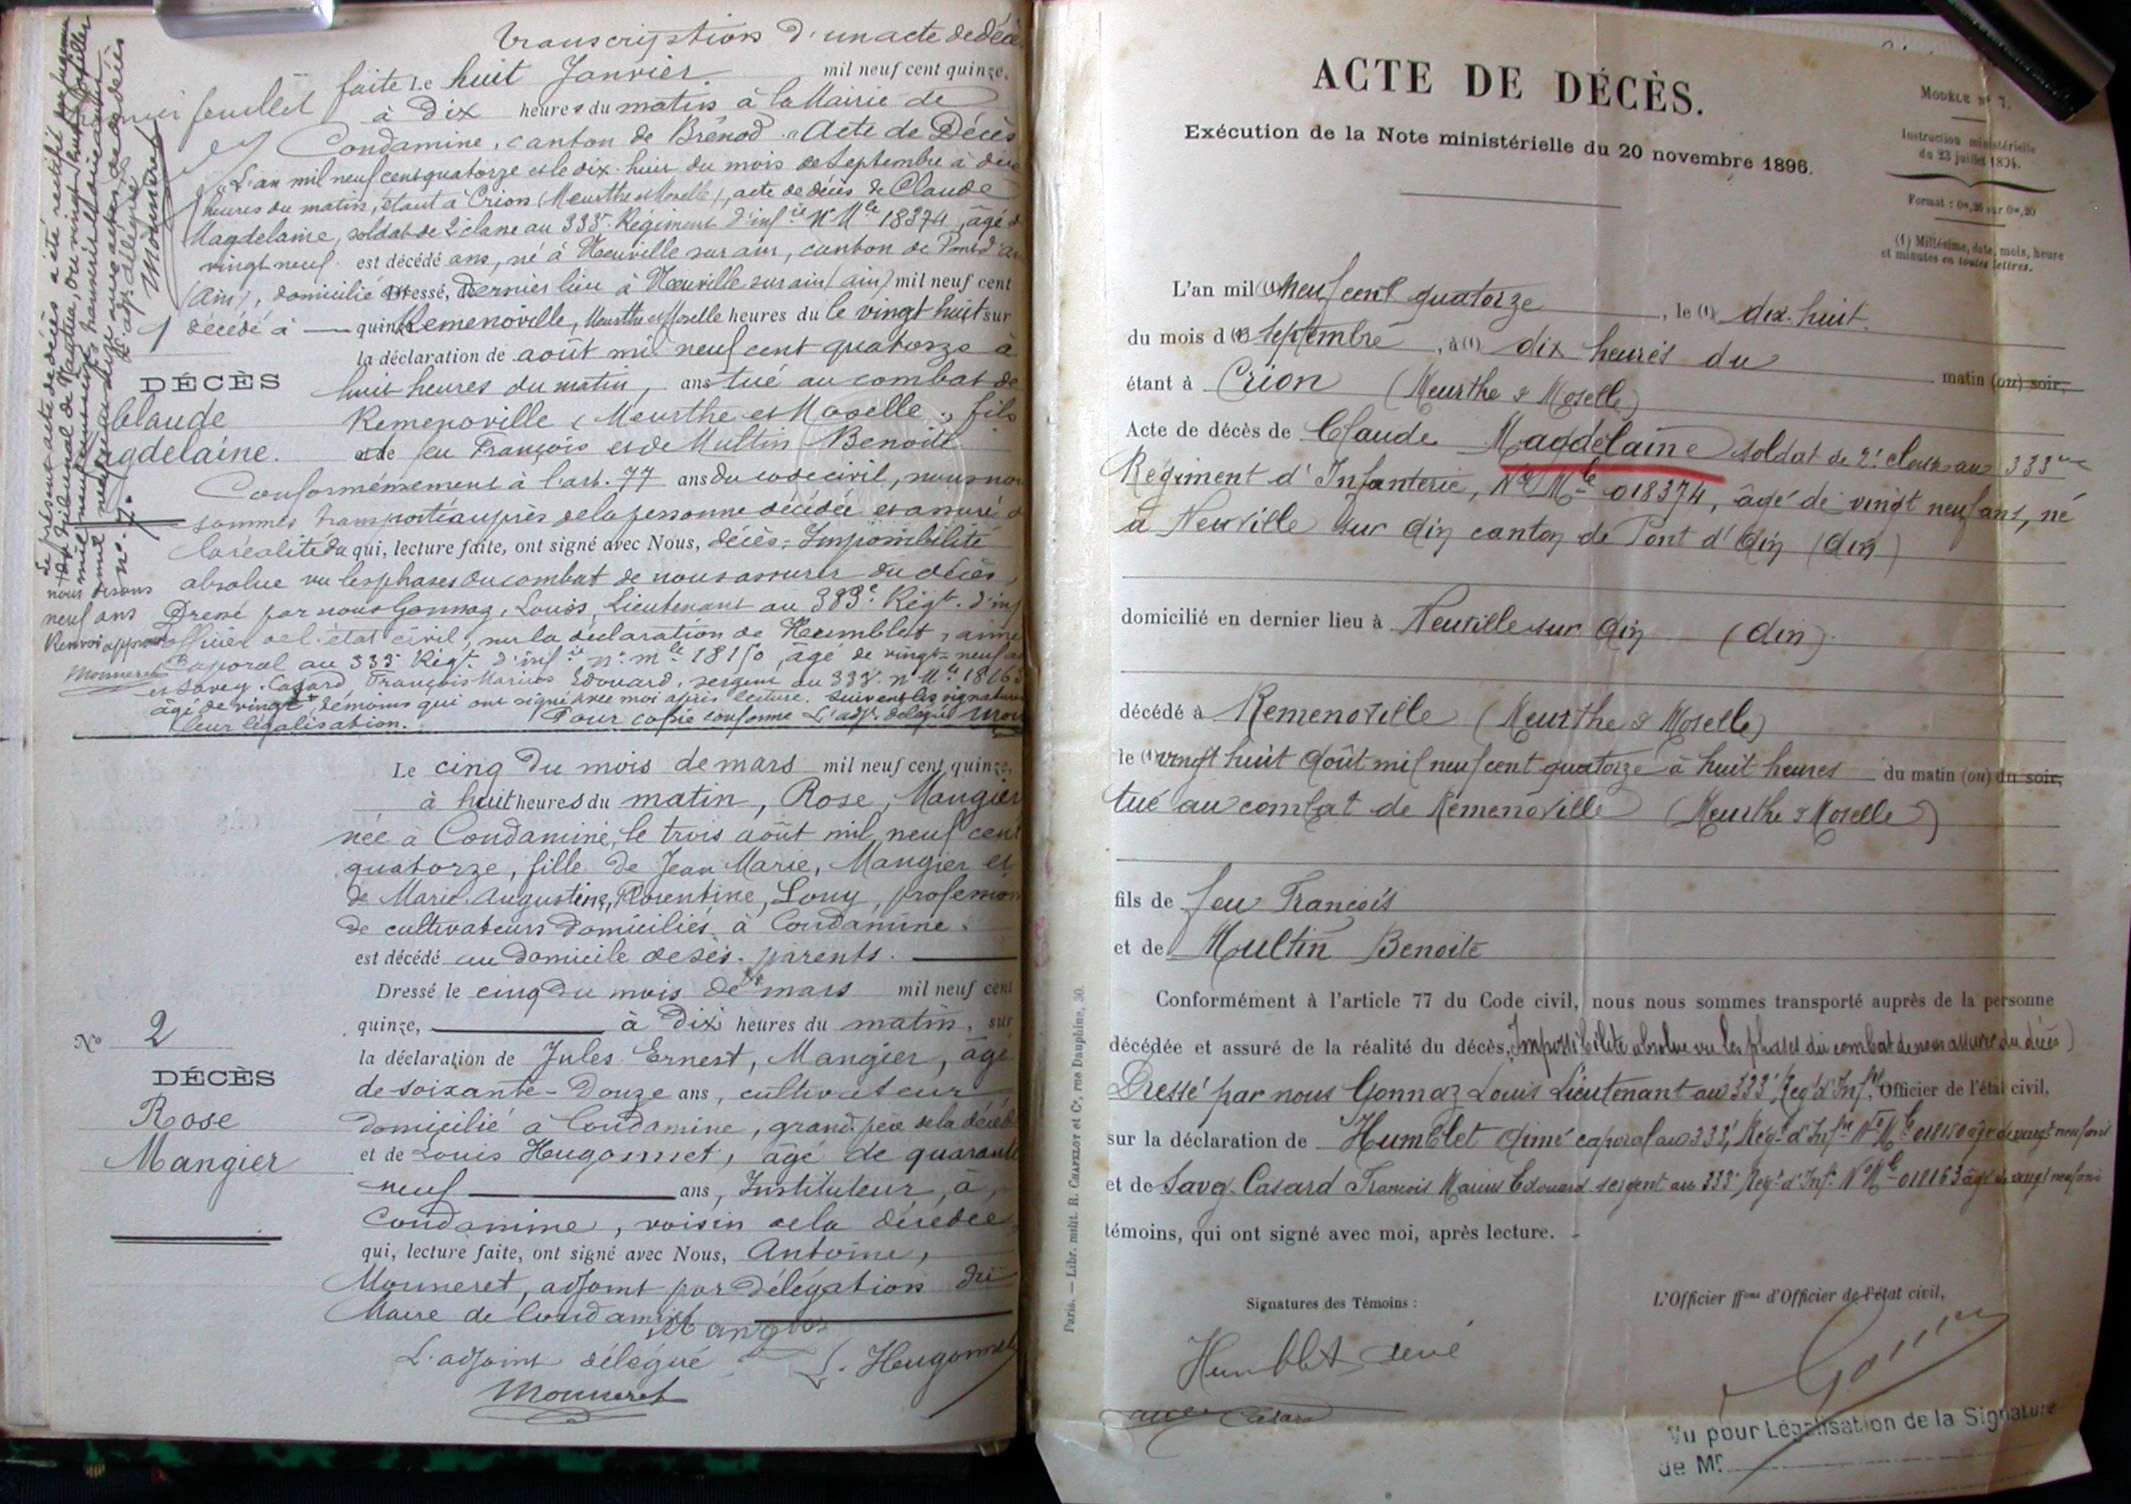 Transcription d'un acte de décès
faite Le huit Janvier mil neuf cent quinze,
à Dix heures du matin à la Mairie de
Condamine, canton de Brénod "Acte de Décès
"L'an mil neuf cent quatorze et le dix-huit du mois de Septembre à dix
heures du matin, étant à Crion (Meurthe et Moselle), acte de décès de Claude
Magdelaine, soldat de 2e classe au 333e Régiment d'inf.ie No Mle 18374, âgé de
vingt neuf est décédé ans, né à Neuville sur ain, canton de Pont d'ain
(Ain), domicilié en Dressé, Dernier lieu à Neuville sur ain (ain) mil neuf cent
décédé à — quinze Remenoville, Meurthe et Moselle heures du le vingt huit sur
la déclaration de août mil neuf cent quatorze à
huit heures du matin, ans tué au combat de
Remenoville (Meurthe et Moselle), fils
et de feu François et de Multin Benoite
Conformémement à l'art. 77 ans du code civil, nous nous
sommes transporté auprès de la personne décédée et assuré de
la réalité du qui, lecture faite, ont signé avec Nous, décès; Impossibilité
absolue vu les phases du combat de nous assurer du décès,
Dressé par nous Gonnaz, Louis, Lieutenant au 333e Régt. d'inf
officier de l'état civil, sur la déclaration de Heumblet, aimé
Caporal au 333e Régt. d'inf.ie no mle 18150, âgé de vingt-neuf ans
et Savey-Casard François Marius Edouard, sergent au 333e no Mle 18163
âgé de vingt+, témoins qui ont signé avec moi après lecture. Suivent les signatures
leur légalisation. Pour copie conforme L'adjt. délégué
No 1
DÉCÈS
Claude
agdelaine.
nous disons
neuf ans
Renvoi approuvé
Monneret
Le présent acte de décès a été rectifié par jugement
du tribunal de Nantua,
Le cinq du mois de mars mil neuf cent quinze,
à huit heures du matin, Rose, Mangier
née à Condamine, le trois août mil neuf cent
quatorze, fille de Jean Marie, Mangier et
de Marie Augustine, Florentine, Louy, profession
de cultivateurs domiciliés à Condamine
est décédé au domicile de ses parents.
Dressé le cinq du mois de mars mil neuf cent
quinze, à Dix heures du matin, sur
la déclaration de Jules Ernest, Mangier, âgé
de soixante-Douze ans, cultivateur
domicilié à Condamine, grand-père de la décédée
et de Louis Hugonnet, âgé de quarante
neuf ans, Instituteur, à
Condamine, voisin de la décédée
qui, lecture faite, ont signé avec Nous, Antoine,
Monneret, adjoint par délégation du
Maire de Condamine
Mangier
L'adjoint délégué L. Hugonnet
Monneret
No 2
DÉCÈS
Rose
Mangier
ACTE DE DÉCÈS.
Exécution de la Note ministérielle du 20 novembre 1896.
MODÈLE No 7.
Instruction ministérielle
du 23 juillet 1894.
Format : 0m,26 sur 0m,20
(1) Millésime, date, mois, heure
et minutes en toutes lettres.
L'an mil (1) neuf cent quatorze, le (1) dix-huit
du mois d (1) septembre, à (1) dix heures du matin (ou) soir,
étant à Crion (Meurthe & Moselle)
Acte de décès de Claude Magdelaine soldat de 2e classe au 333me
Régiment d'Infanterie, No Mle 018374, âgé de vingt neuf ans, né
à Neuville sur Ain canton de Pont d'Ain (Ain)
domicilié en dernier lieu à Neuville sur Ain (Ain).
décédé à Remenoville (Meurthe & Moselle)
le (1) vingt huit Août mil neuf cent quatorze à huit heures du matin (ou) du soir,
tué au combat de Remenoville (Meurthe & Moselle)
fils de feu François
et de Multin Benoite
Conformément à l'article 77 du Code civil, nous nous sommes transporté auprès de la personne
décédée et assuré de la réalité du décès, Impossibilité absolue vu les phases du combat de nous assurer du décès)
Dressé par nous Gonnaz Louis Lieutenant au 333e Reg. d'Inf.ie, Officier de l'état civil,
sur la déclaration de Humblet Aimé caporal au 333e Reg. d'Inf.ie No Mle 018150 âgé de vingt neuf ans
et de Savey-Casard François Marius Edouard sergent au 333e Reg. d'Inf. No Mle 018163 âgé de vingt neuf ans
témoins, qui ont signé avec moi, après lecture.
Signatures des Témoins :
L'Officier ffons d'Officier de l'état civil,
Humblet Aimé
Casard
Vu pour Légalisation de la Signature
de Mr
Paris. — Libr. milit. R. CHAPELOT et Ce, rue Dauphine, 30.